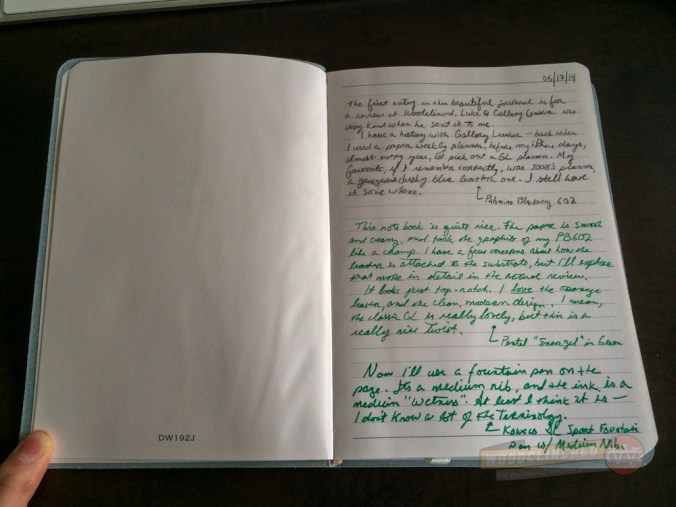 05/17/14
The first entry in this beautiful journal is for
a review at Woodclinched. Luke @ Gallery Leather was
very kind when he sent it to me.
I have a history with Gallery Leather — back when
I used a paper weekly planner, before my iPhone days,
almost every year, I'd pick out a GL planner. My
favourite, if I remember correctly, was 2008's planner,
a gorgeous dusky blue leather one. I still have
it some where.
Palomino Blackwing 602
This note book is quite nice. The paper is smooth
and creamy, and took the graphite of my PB602
like a champ. I have a few concerns about how the
leather is attached to the substrate, but I'll explore
that more in detail in the actual review.
It looks just top-notch. I love the orange
leather, and the clean, modern design. I mean,
the classic GL is really lovely, but this is a
really nice twist.
Pentel "Energel" in Green
Now I'll use a fountain pen on the
page. Its a medium nib, and the ink is a
medium "wetness". At least I think it is —
I don't know a lot of the terminology.
Kaweco Sport Fountain
Pen w/ Medium Nib.
DW192J